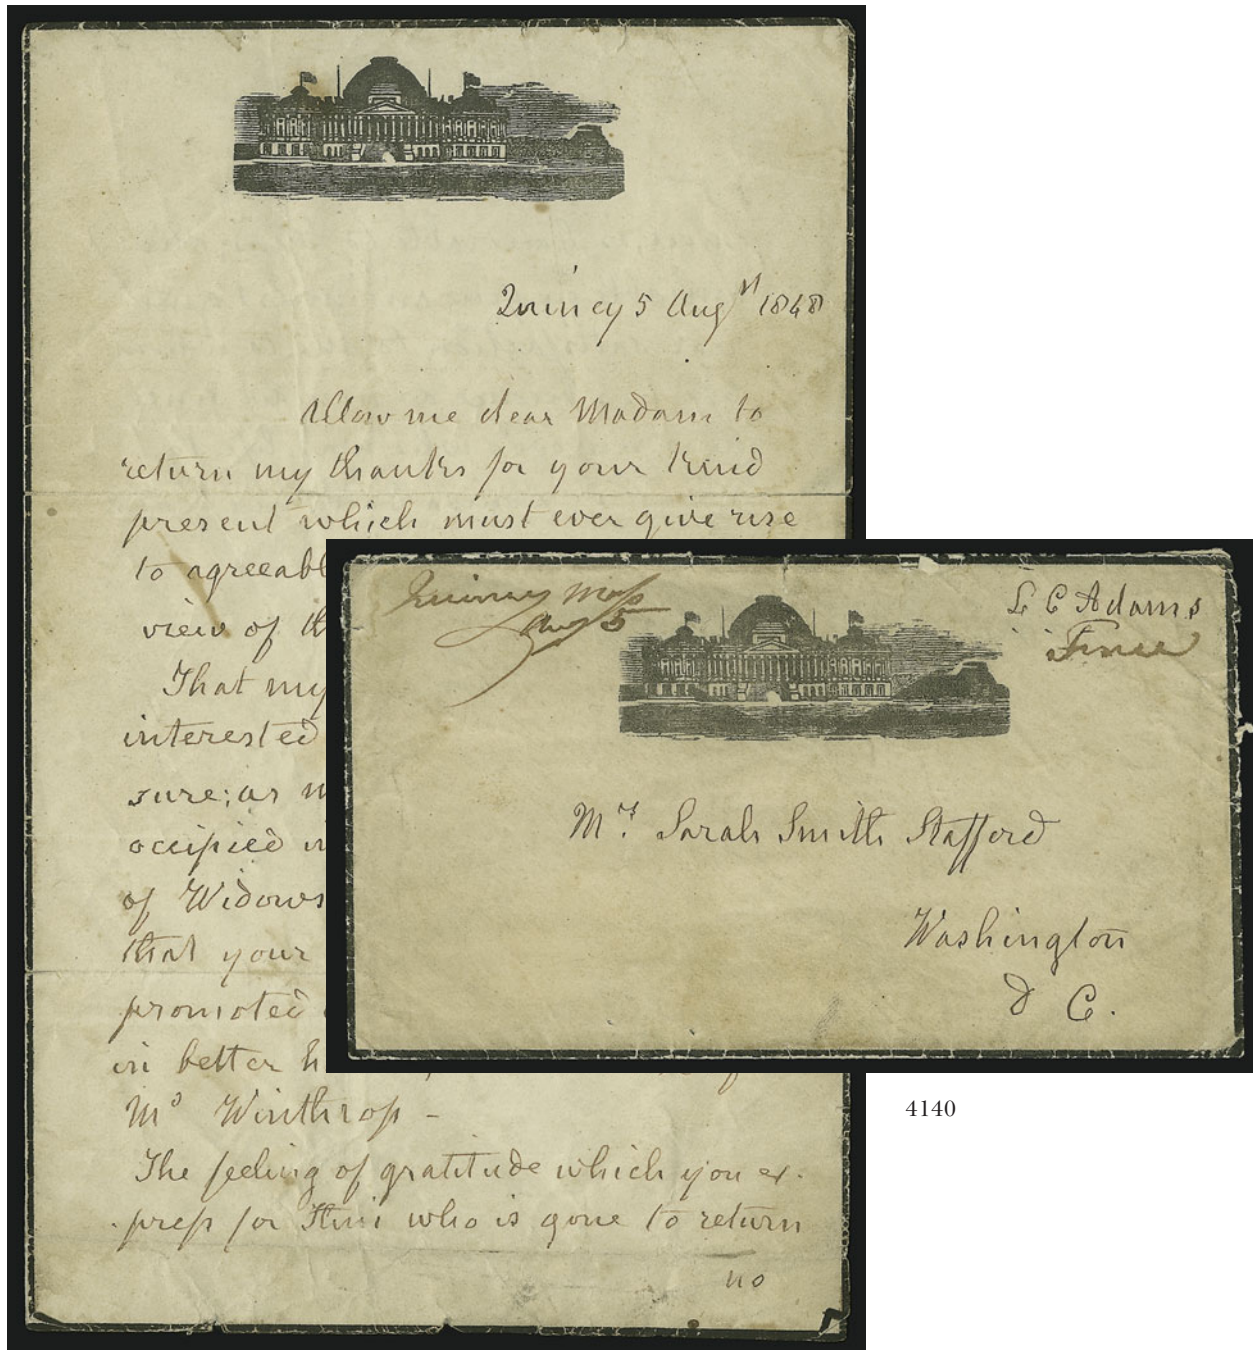 Quincy 5 Augst 1848
Allow me dear Madam to
return my thanks for your kind
present which must ever give rise
to agreeabl
view of th
That my
interested
sure; as m
occupied in
of Widows
that your
promoted
in better h
Ms Winthrop -
The feeling of gratitude which you ex-
-press for Him who is gone to return
no
Quincy Mass
Aug 5
L C Adams
Free
Mrs Sarah Smith Stafford
Washington
D C.
4140